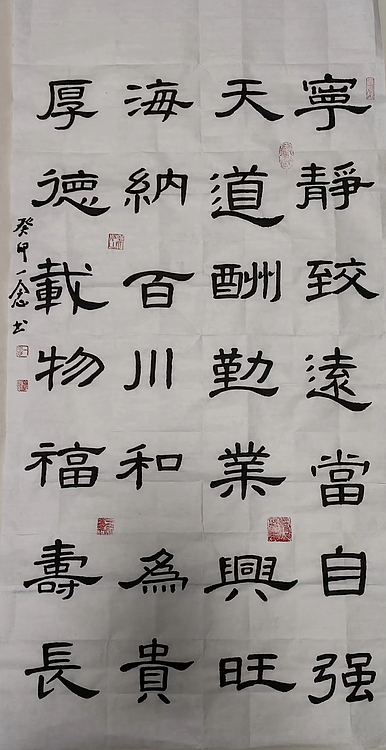 寧靜致遠當自强
天道酬勤業興旺
海納百川和為貴
厚德載物福壽長
癸卯一念书